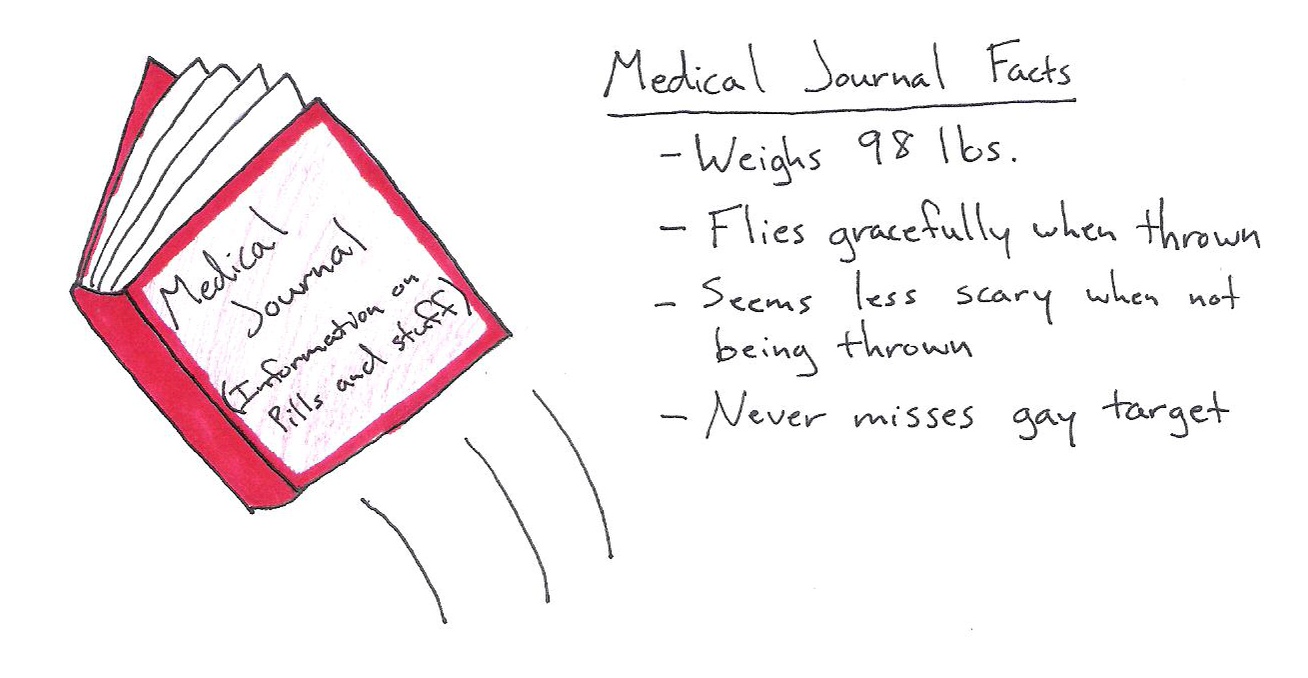 Medical
Journal
(Information on
Pills and stuff)
Medical Journal Facts
- Weighs 98 lbs.
- Flies gracefully when thrown
- Seems less scary when not
being thrown
- Never misses gay target